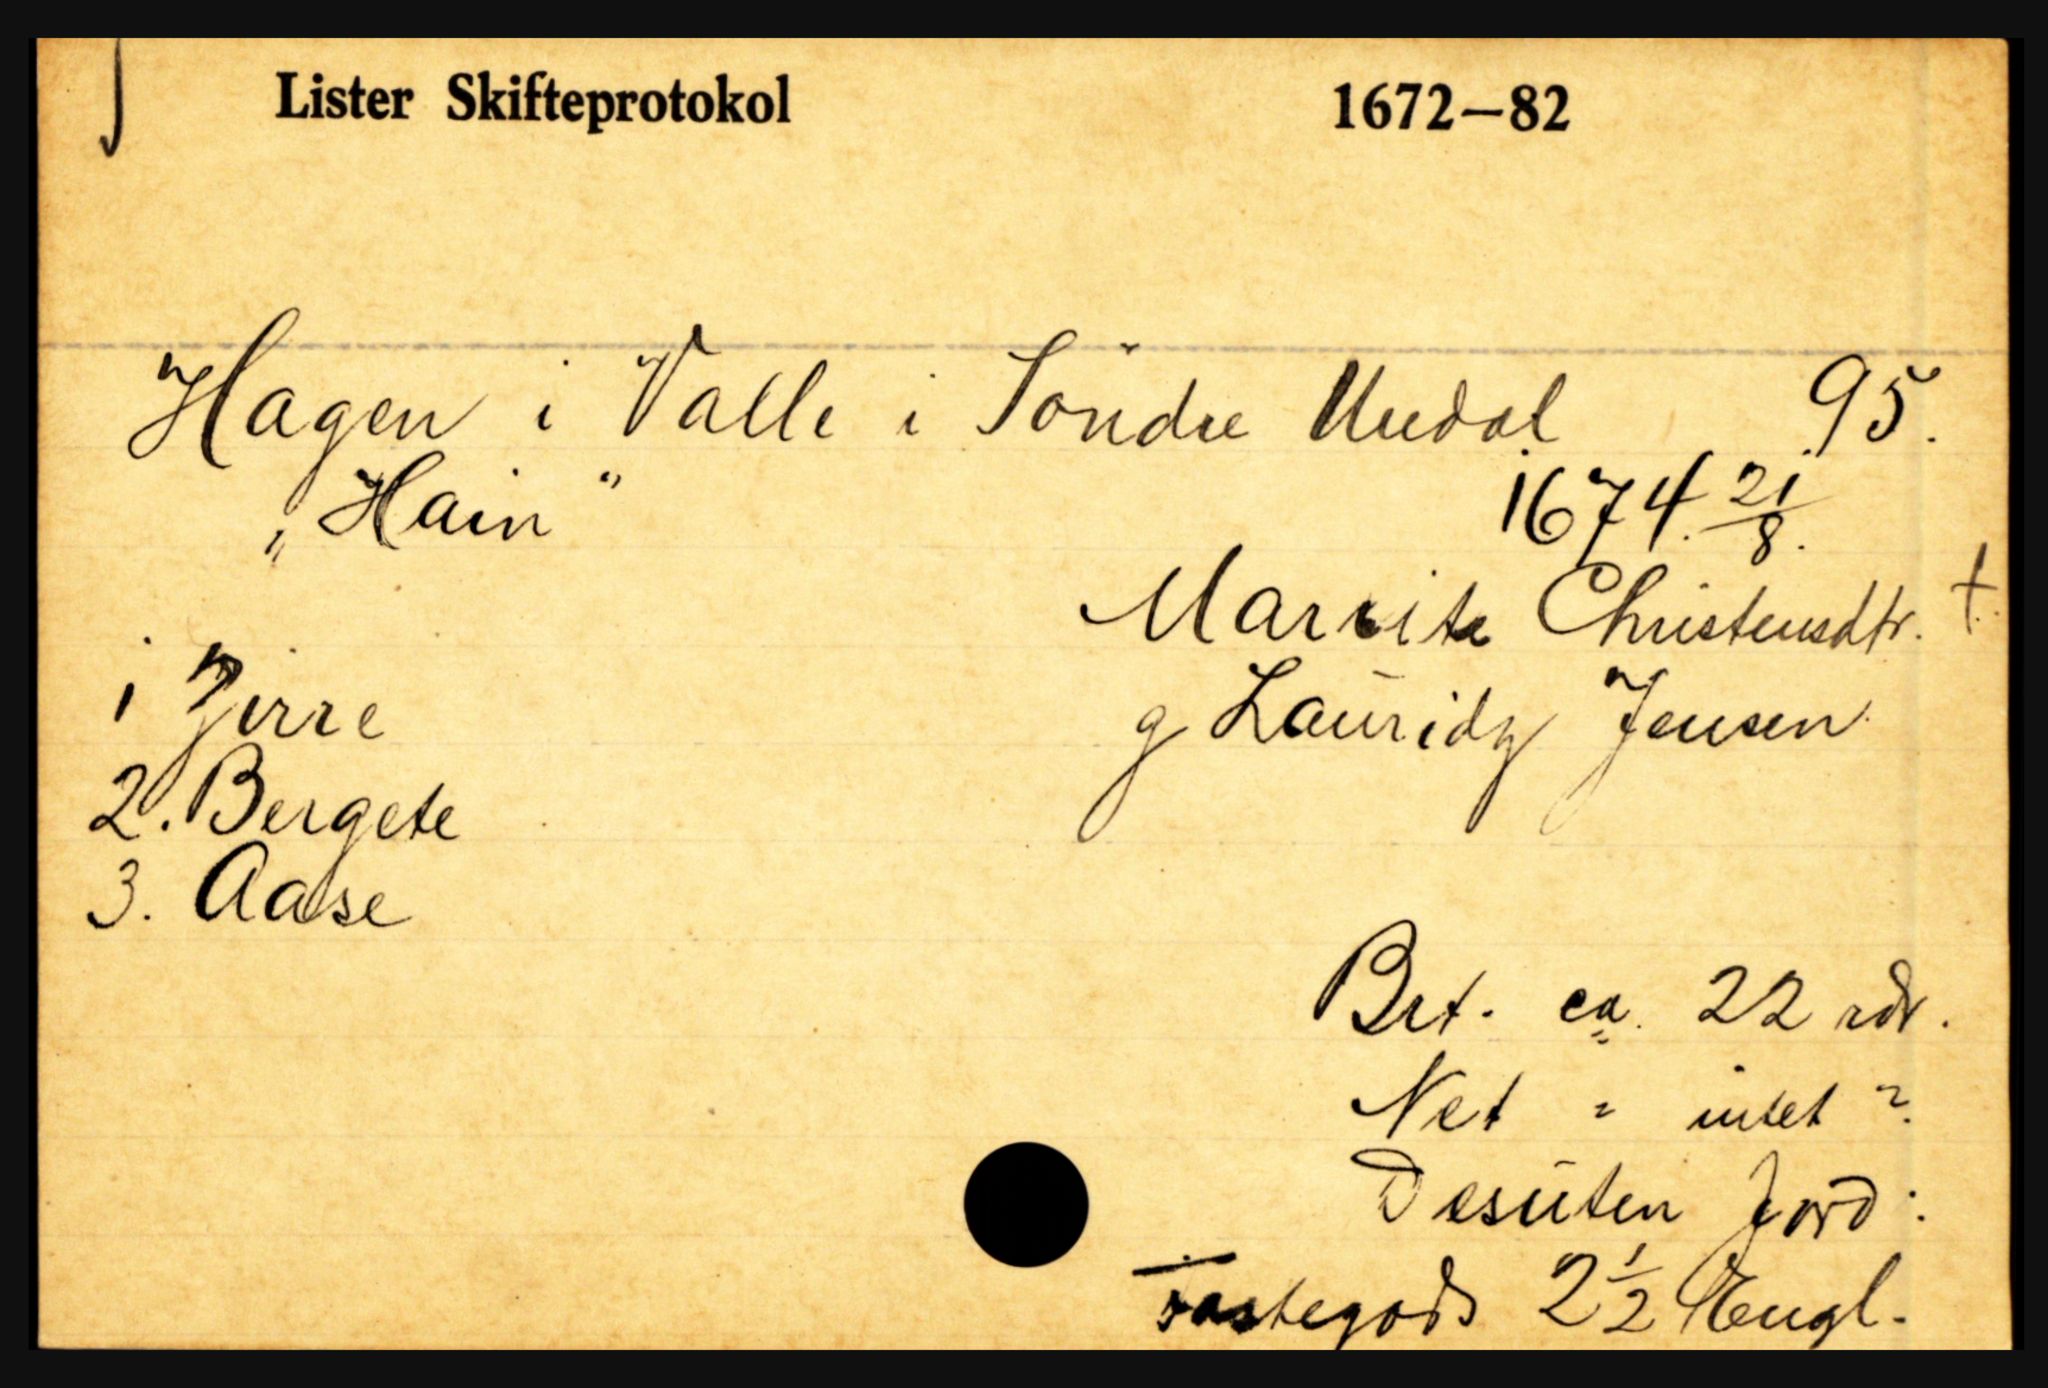 Lister Skifteprotokol 1672—82
Hagen i Valle i Söndre Undal 95.
„Hain“ 1674 21/8.
Marrite Christensdtr. †.
1 Zirre g Lauridz Jensen
2. Bergete
3. Aase
Brt. ca. 22 rdr.
Net = intet ?
Desuten Jord:
Fastegods 2 1/2 Engl.